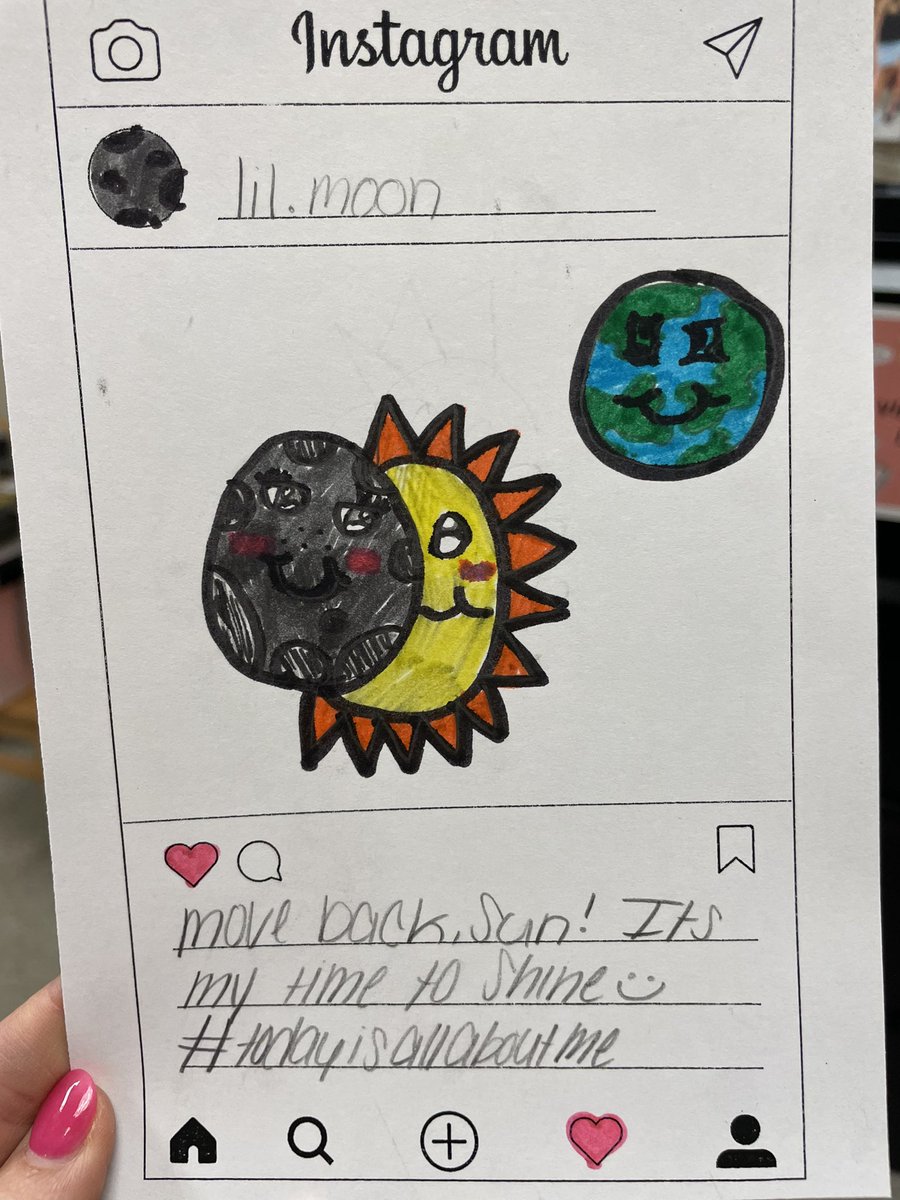 Instagram
lil.moon
move back, Sun! Its
my time to Shine :)
#todayisallaboutme